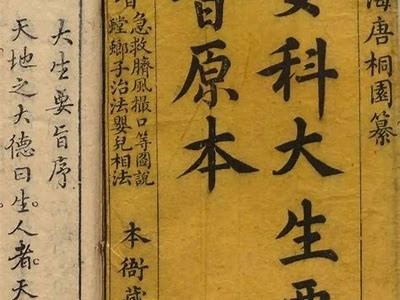 海唐桐園纂
女科大生要
旨原本
急救臍風撮口等圖說
螳螂子治法嬰兒相法
本衙藏
大生要旨序
天地之大德曰生人者天